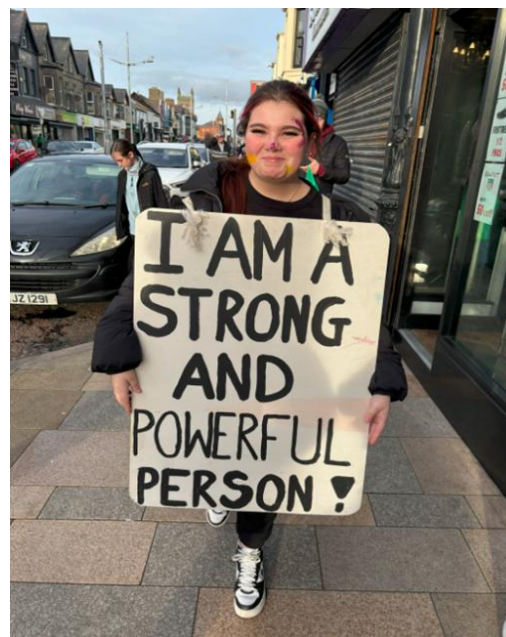 I AM A
STRONG
AND
POWERFUL
PERSON!
JZ 1291